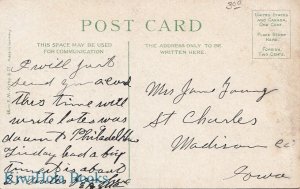 30¢
POST CARD
THIS SPACE MAY BE USED
FOR COMMUNICATION
THE ADDRESS ONLY TO BE
WRITTEN HERE.
UNITED STATES
AND CANADA,
ONE CENT.
FOREIGN,
TWO CENTS.
I will just
send you a card
this time will
write later was
down to Philadelphia
had a big
time
about
Mrs Jane Young
St Charles
Madison Co
Iowa
RiwaFlora Books